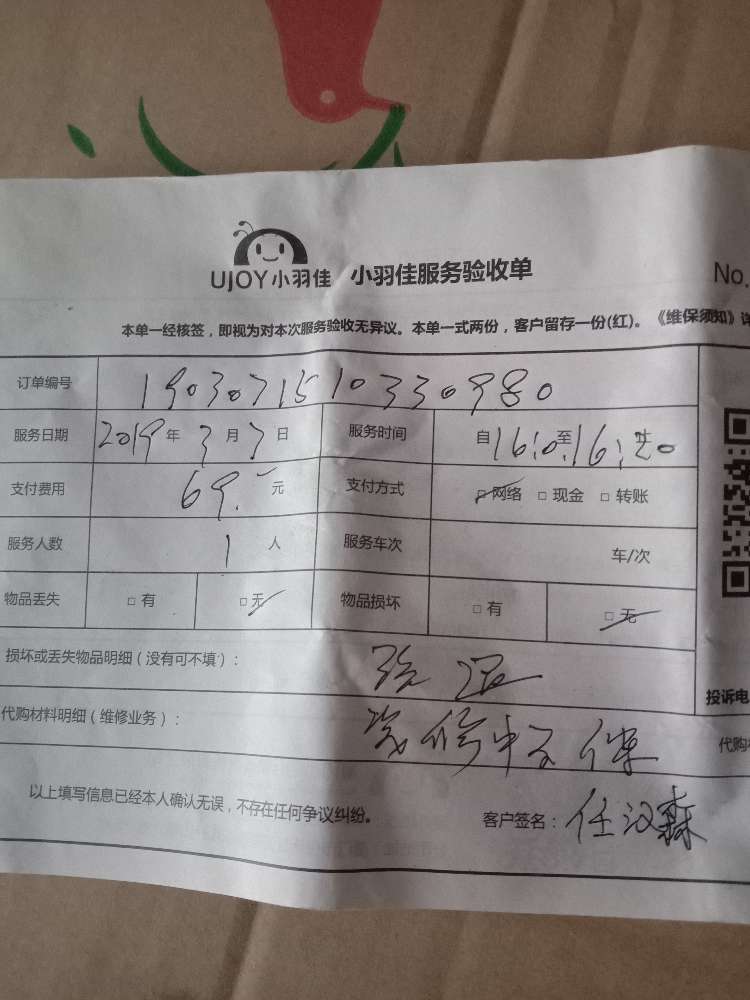 UJOY小羽佳 小羽佳服务验收单 No.
本单一经核签，即视为对本次服务验收无异议。本单一式两份，客户留存一份(红)。《维保须知》详
订单编号 1903071510330980
服务日期 2019年3月7日 服务时间 自16:0至16:20
支付费用 69.元 支付方式 □网络 □现金 □转账
服务人数 1人 服务车次 车/次
物品丢失 □有 □无 物品损坏 □有 □无
损坏或丢失物品明细（没有可不填）：
投诉电
代购材料明细（维修业务）： 代购
以上填写信息已经本人确认无误，不存在任何争议纠纷。 客户签名：任汉森